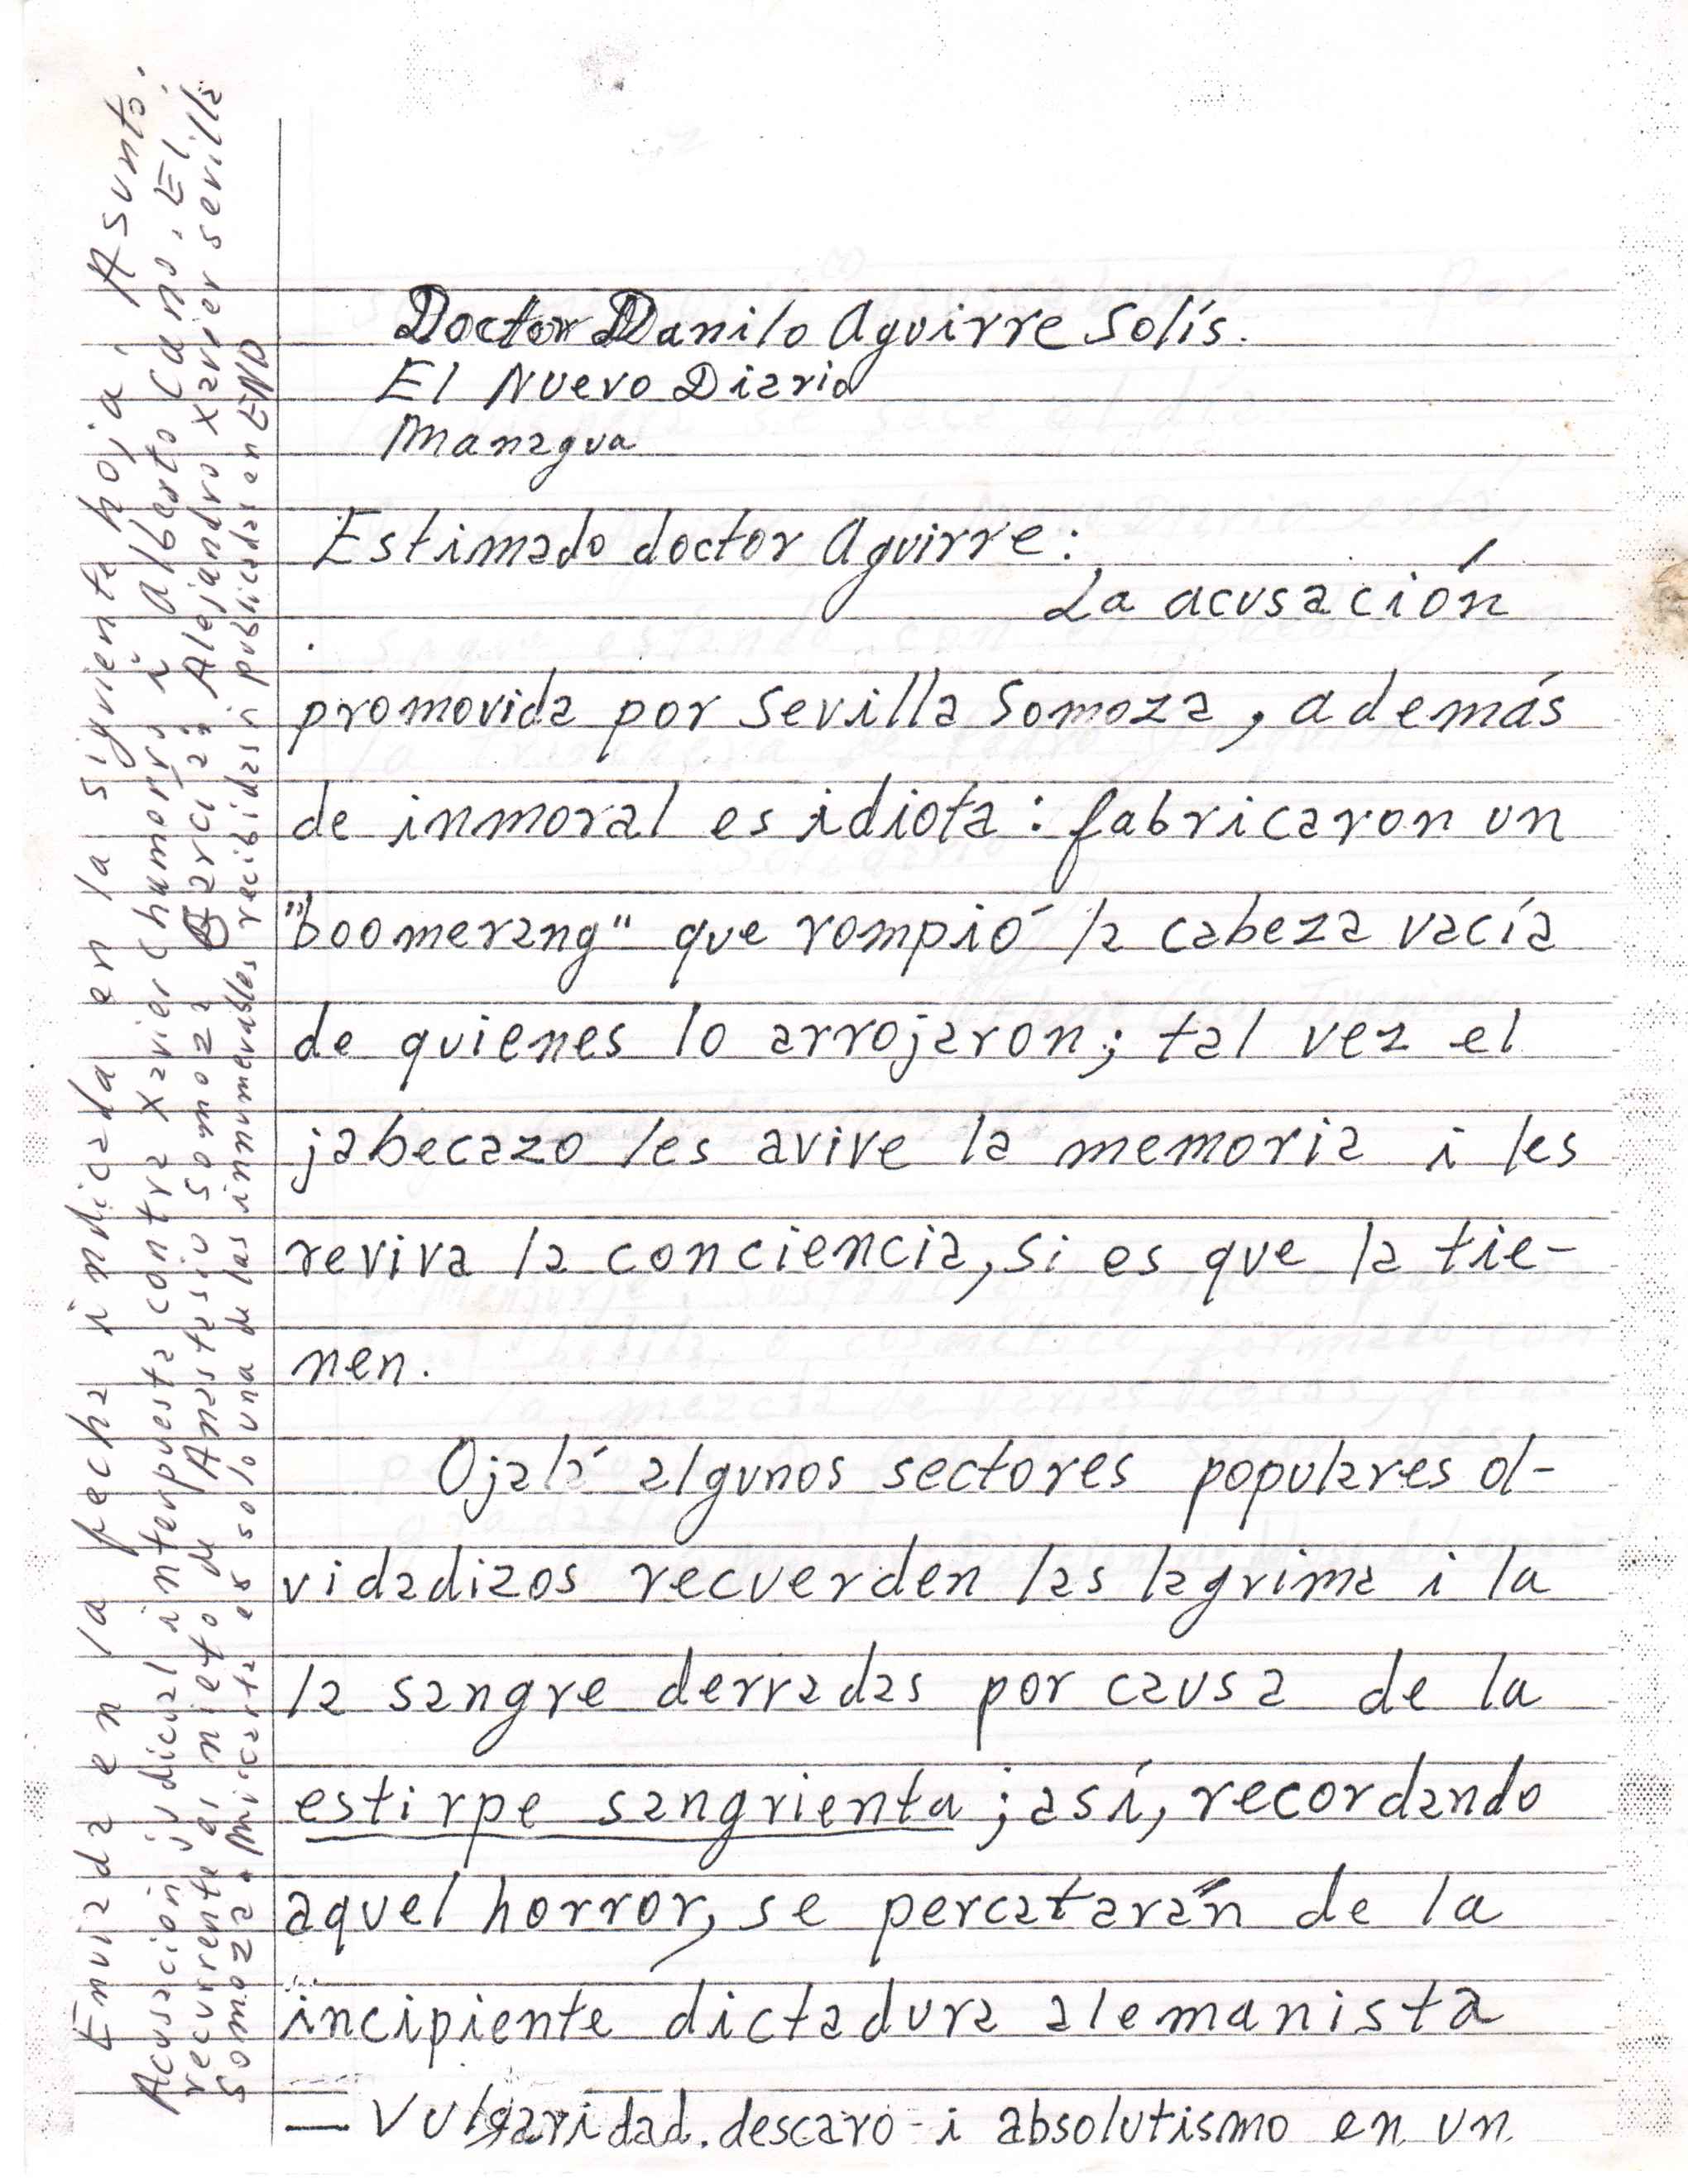 Doctor Danilo Aguirre Solís.
El Nuevo Diario
Managua
Estimado doctor Aguirre:
La acusación
promovida por Sevilla Somoza, además
de inmoral es idiota: fabricaron un
"boomerang" que rompió la cabeza vacía
de quienes lo arrojaron; tal vez el
jabecazo les avive la memoria i les
reviva la conciencia, si es que la tie-
nen.
Ojalá algunos sectores populares ol-
vidadizos recuerden las lagrima i la
la sangre derradas por causa de la
estirpe sangrienta; así, recordando
aquel horror, se percatarán de la
incipiente dictadura alemanista
— Vulgaridad. descaro - i absolutismo en un
Enviada en la fecha indicada en la siguiente hoja; Asunto:
Acusación judicial interpuesta contra Xavier Chamorro i Alberto Cano. El
recurrente es nieto de Anastasio Somoza García: Alejandro Xavier Sevilla
Somoza. Mi carta es solo una de las innumerables recibidas i publicadas en END